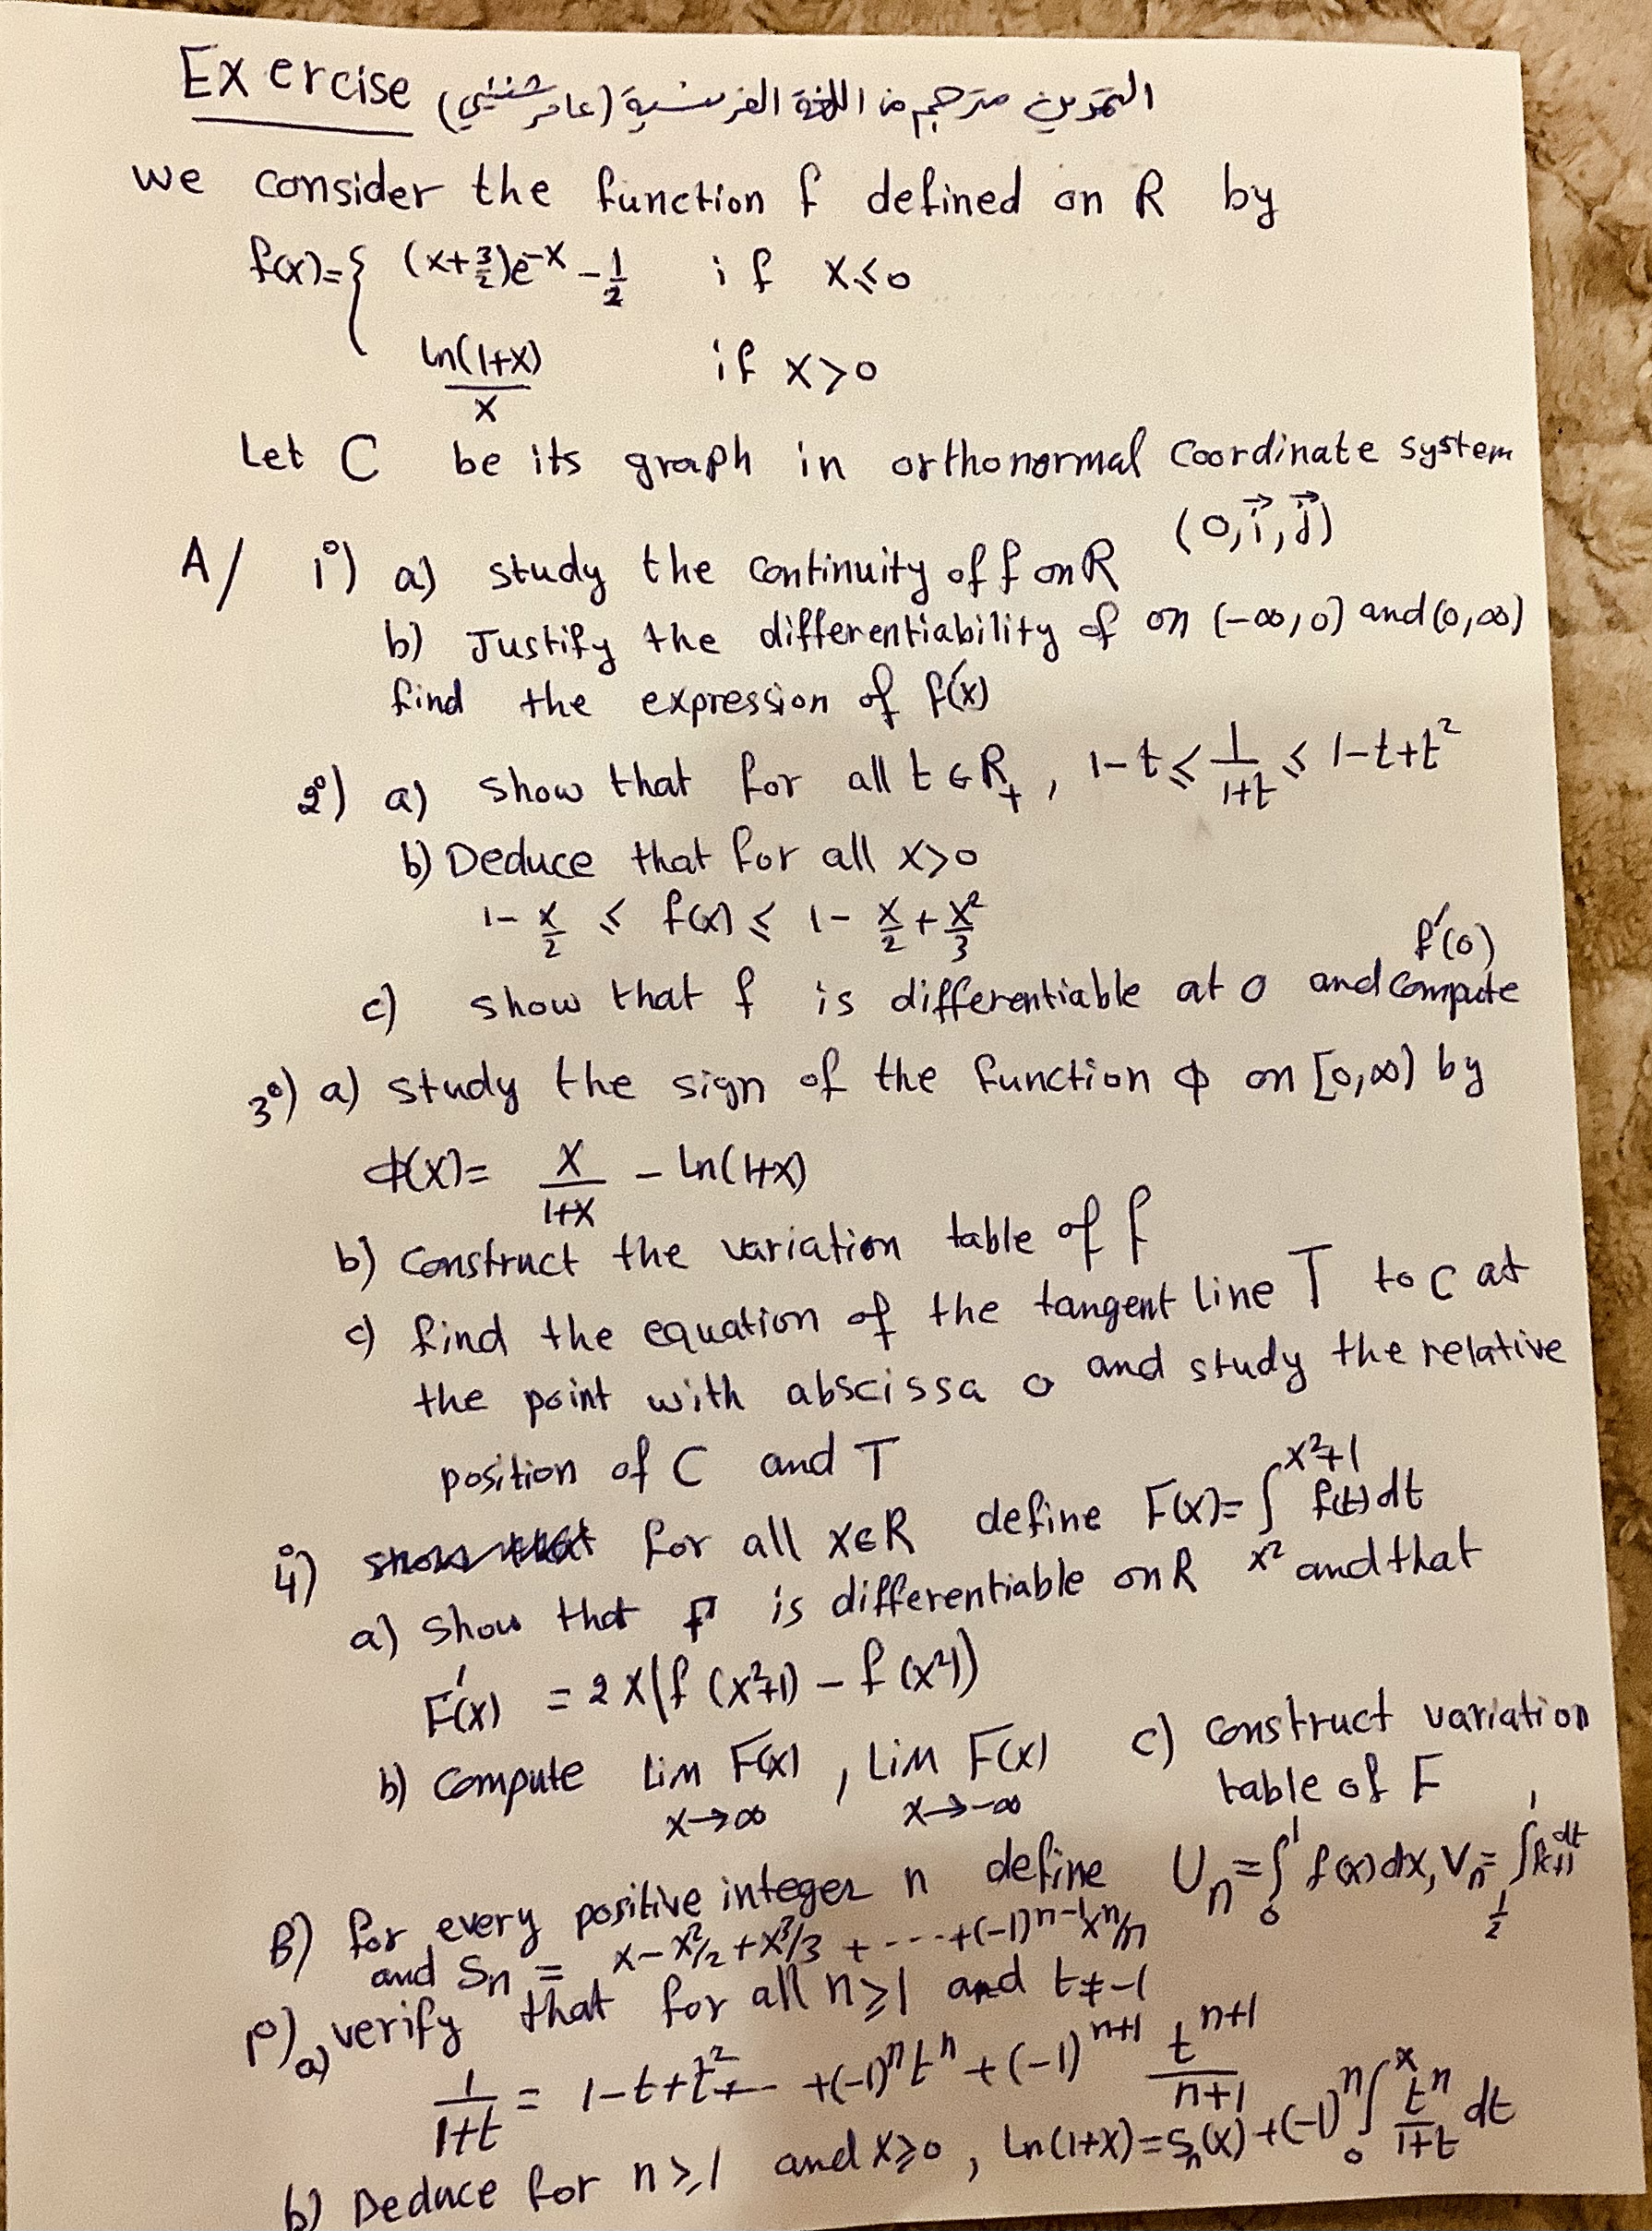 Exercise التمرين مترجم من اللغة الفرنسية (عامر شنيني)
we consider the function f defined on R by
f(x)= { (x+3/2)e^-x - 1/2 if x≤0
ln(1+x)/x if x>0
Let C be its graph in orthonormal coordinate system
(O,i⃗,j⃗)
A/ 1°) a) study the continuity of f on R
b) Justify the differentiability of on (-∞,0) and (0,∞)
find the expression of f'(x)
2°) a) show that for all t∈R₊, 1-t ≤ 1/(1+t) ≤ 1-t+t²
b) Deduce that for all x>0
1 - x/2 ≤ f(x) ≤ 1 - x/2 + x²/3
c) show that f is differentiable at 0 and compute f'(0)
3°) a) study the sign of the function φ on [0,∞) by
φ(x)= x/(1+x) - ln(1+x)
b) construct the variation table of f
c) find the equation of the tangent line T to C at
the point with abscissa 0 and study the relative
position of C and T
4°) for all x∈R define F(x)= ∫_{x²}^{x²+1} f(t)dt
a) Show that F is differentiable on R and that
F'(x) = 2x(f(x²+1) - f(x²))
b) compute lim F(x) x→∞, lim F(x) x→-∞ c) construct variation
table of F
B) for every positive integer n define U_n = ∫_0^1 f(x)dx,
and S_n = x - x²/2 + x³/3 + ---- +(-1)^{n-1}x^n/n
1°) a) verify that for all n≥1 and t≠-1
1/(1+t) = 1-t+t²+--- +(-1)^n t^n + (-1)^{n+1} t^{n+1}/(n+1)
b) Deduce for n≥1 and x≥0, ln(1+x)=S_n(x)+(-1)^n ∫_0^x t^n/(1+t) dt